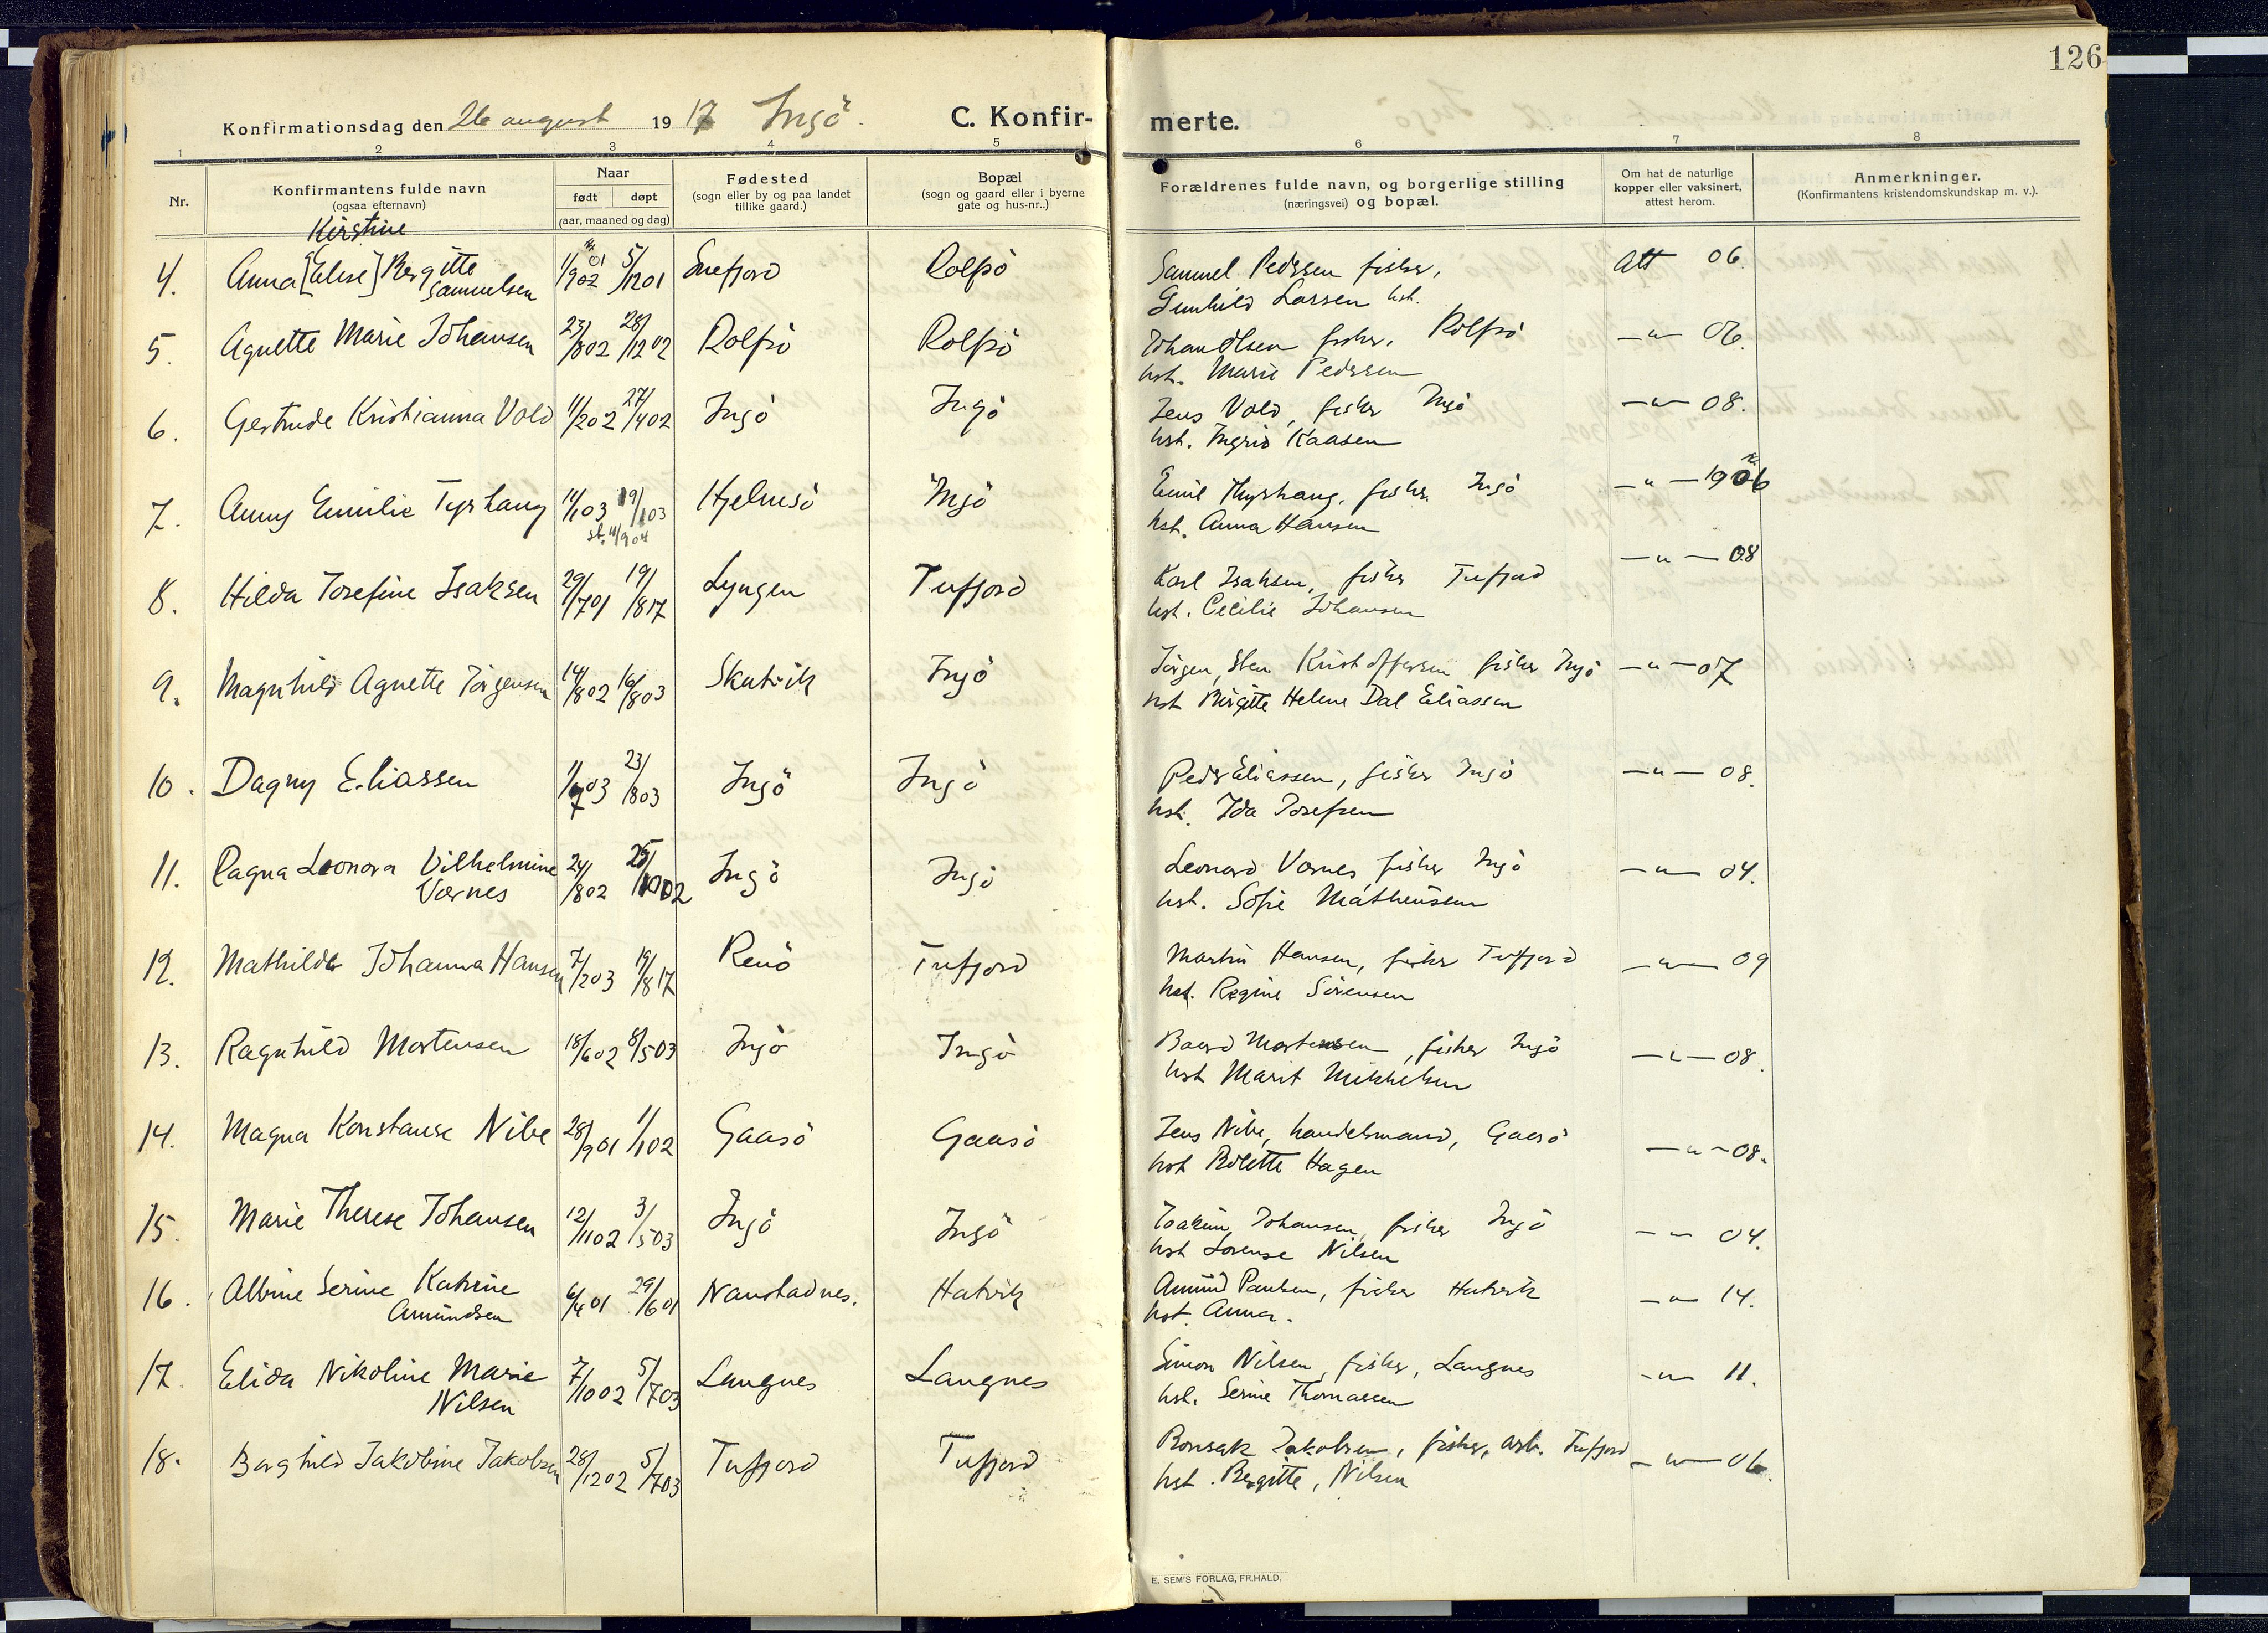 126
Konfirmationsdag den 26 august 1917 Ingö. C. Konfir- merte.
1 2 3 4 5 6 7 8
Nr.
Konfirmantens fulde navn
(ogsaa efternavn)
Naar
født døpt
(aar, maaned og dag)
Fødested
(sogn eller by og paa landet
tillike gaard.)
Bopæl
(sogn og gaard eller i byerne
gate og hus-nr..)
Forældrenes fulde navn, og borgerlige stilling
(næringsvei) og bopæl.
Om hat de naturlige
kopper eller vaksinert,
attest herom.
Anmerkninger.
(Konfirmantens kristendomskundskap m. v.).
Kirstine
4. Anna [Elise] Bergitte 1/9 01 5/12 01 Snefjord Rolfsö Samuel Pedersen fisker, Att 06.
Samuelsen Gunhild Larsen hst.
5. Agnette Marie Johansen 23/8 02 28/12 02 Rolfsö Rolfsö Johan Olsen fisker, Rolfsö —"— 06.
hst. Marie Pedersen
6. Gertrude Kristianna Vold 11/2 02 27/4 02 Ingö Ingö Jens Vold, fisker Ingö —"— 08.
hst. Ingrid Kaasen
7. Anny Emilie Tyrhaug 11/1 03 19/1 03 Hjelmsö Ingö Emil Thyrhaug, fisker Ingö —"— 1906
st. 11/9 04 hst. Anna Hansen
8. Hilda Josefine Isaksen 29/7 01 19/8 17 Lyngen Tufjord Karl Isaksen, fisker Tufjord —"— 08
hst. Cecilie Johansen
9. Magnhild Agnette Jörgensen 14/8 02 16/8 03 Skutvik Ingö Jörgen, Sten Kristoffersen fisker Ingö —"— 07
hst Birgitte Helene Dal Eliassen
10. Dagny Eliassen 1/7 03 23/8 03 Ingö Ingö Peder Eliassen, fisker Ingö —"— 08.
hst. Ida Josefsen
11. Ragna Leonora Vilhelmine 24/8 02 25/10 02 Ingö Ingö Leonard Varnes, fisker Ingö —"— 04.
Varnes hst. Sofie Matheussen
12. Mathilde Johanna Hansen 7/2 03 19/8 17 Renö Tufjord Martin Hansen, fisker Tufjord —"— 09
hst. Regine Sörensen
13. Ragnhild Mortensen 18/6 02 8/5 03 Ingö Ingö Baard Mortensen, fisker Ingö —"— 08.
hst Marit Mikkelsen
14. Magna Konstanse Nibe 28/9 01 1/1 02 Gaasö Gaasö Jens Nibe, handelsmand, Gaasö —"— 08.
hst Bolette Hagen
15. Marie Therese Johansen 12/11 02 3/5 03 Ingö Ingö Joakim Johansen, fisker Ingö —"— 04.
hst Lorense Nilsen
16. Albine Serine Katrine 6/4 01 29/6 01 Nanstadnes. Hatvik Amund Paulsen, fisker Hatvik —"— 14.
Amundsen hst. Anna.
17. Elida Nikoline Marie 7/10 02 5/7 03 Langnes Langnes Simon Nilsen, fisker, Langnes —"— 11.
Nilsen hst. Serine Thomassen
18. Borghild Jakobine Jakobsen 28/12 02 5/7 03 Tufjord Tufjord Bonsak Jakobsen, fisker, arb. Tufjord —"— 06.
hst. Bergitte, Nilsen
E. SEM'S FORLAG, FR.HALD.